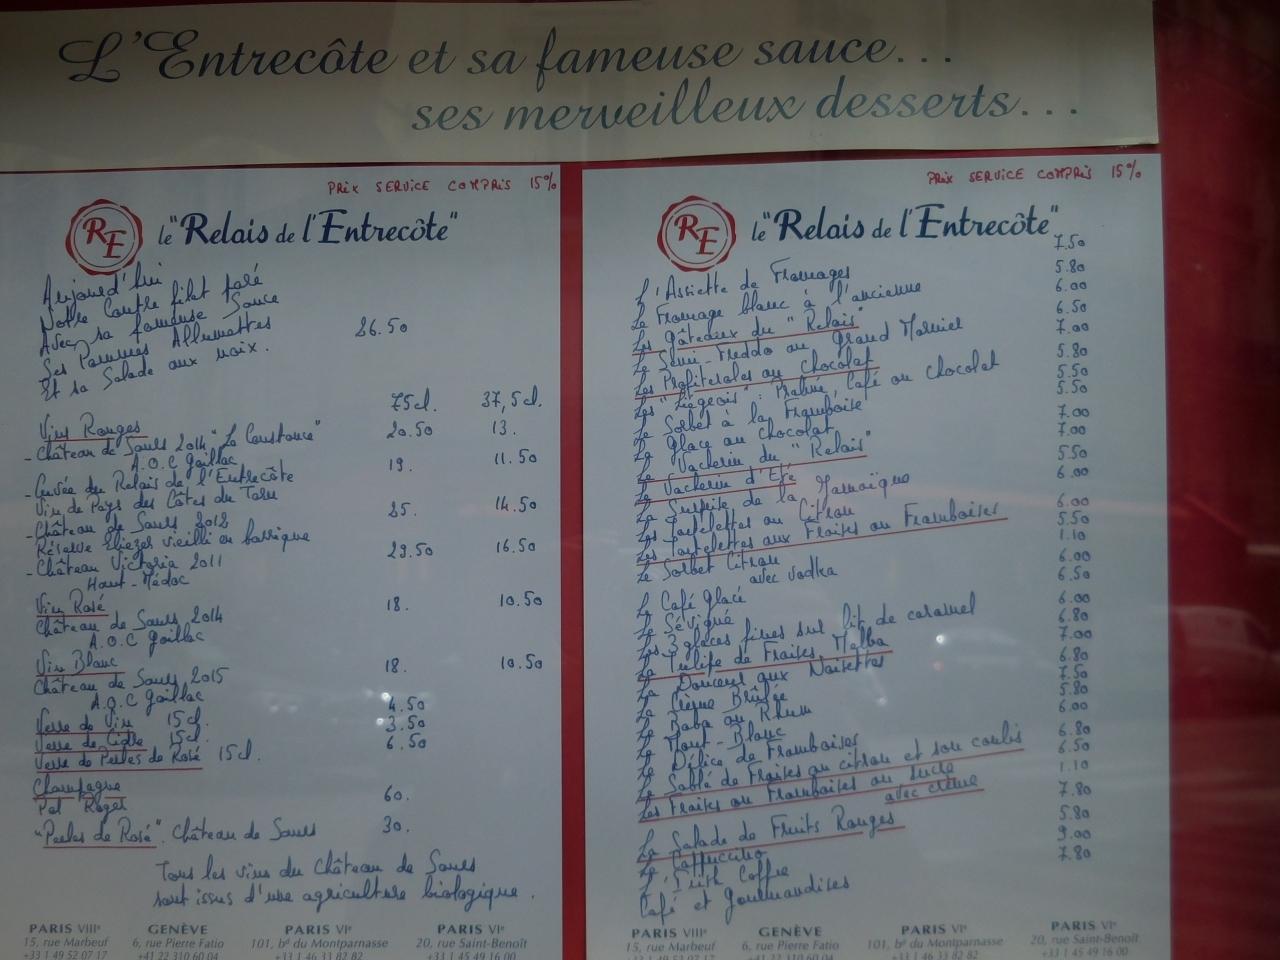 L'Entrecôte et sa fameuse sauce...
ses merveilleux desserts...
PRIX SERVICE COMPRIS 15%
RE
le "Relais de l'Entrecôte"
Aujourd'hui
Notre Contre filet paré
Avec sa fameuse Sauce
Ses Pommes Allumettes 26.50
Et sa Salade aux noix.
75cl. 37,5cl.
Vins Rouges
- Château de Saurs 2014 "La Constance" 20.50 13.
A.O.C Gaillac
- Cuvée du Relais de l'Entrecôte 19. 11.50
Vin de Pays des Côtes du Tarn
- Château de Saurs 2012 25. 14.50
Réserve Eliezer vieilli en barrique
- Château Victoria 2011 29.50 16.50
Haut-Médoc
Vin Rosé
Château de Saurs 2014 18. 10.50
A.O.C Gaillac
Vin Blanc
Château de Saurs 2015 18. 10.50
A.O.C Gaillac
Verre de Vin 15cl. 4.50
Verre de Cidre 15cl. 3.50
Verre de Perles de Rosé 15cl. 6.50
Champagne
Pol Roger 60.
"Perles de Rosé". Château de Saurs 30.
Tous les vins du Château de Saurs
sont issus d'une agriculture biologique.
PARIS VIIIe
15, rue Marbeuf
+33 1 49 52 07 17
GENÈVE
6, rue Pierre Fatio
+41 22 310 60 04
PARIS VIe
101, bd du Montparnasse
+33 1 46 33 82 82
PARIS VIe
20, rue Saint-Benoît
+33 1 45 49 16 00
PRIX SERVICE COMPRIS 15%
RE
le "Relais de l'Entrecôte"
L'Assiette de Fromages 7.50
Le Fromage blanc à l'ancienne 5.80
Les Gâteaux du "Relais" 6.00
Le Semi-Freddo au Grand Marnier 6.50
Les Profiteroles au Chocolat 7.00
Les "Liégeois": Praliné, Café ou chocolat 5.80
Le Sorbet à la Framboise 5.50
La Glace au Chocolat 5.50
Le Vacherin du "Relais" 7.00
Le Vacherin d'Eté 7.00
La Surprise de la Jamaïque 5.50
Les Tartelettes au Citron 6.00
Les Tartelettes aux Fraises ou Framboises 6.00
Le Sorbet Citron 5.50
avec vodka 1.10
Le Café Glacé 6.00
Le Sévigné 6.50
Les 3 glaces fines sur lit de caramel 6.00
La Tulipe de Fraises Melba 6.80
La Douceur aux Noisettes 7.00
La Crème Brûlée 6.80
Le Baba au Rhum 7.50
Le Mont-Blanc 5.80
Le Délice de Framboises 6.00
Le Sablé de Fraises au citron et son coulis 6.80
Les Fraises ou Framboises au sucre 6.50
avec crème 1.10
La Salade de Fruits Rouges 7.80
Le Cappuccino 5.80
L'Irish Coffee 9.00
Café et Gourmandises 7.80
PARIS VIIIe
15, rue Marbeuf
+33 1 49 52 07 17
GENÈVE
6, rue Pierre Fatio
+41 22 310 60 04
PARIS VIe
101, bd du Montparnasse
+33 1 46 33 82 82
PARIS VIe
20, rue Saint-Benoît
+33 1 45 49 16 00